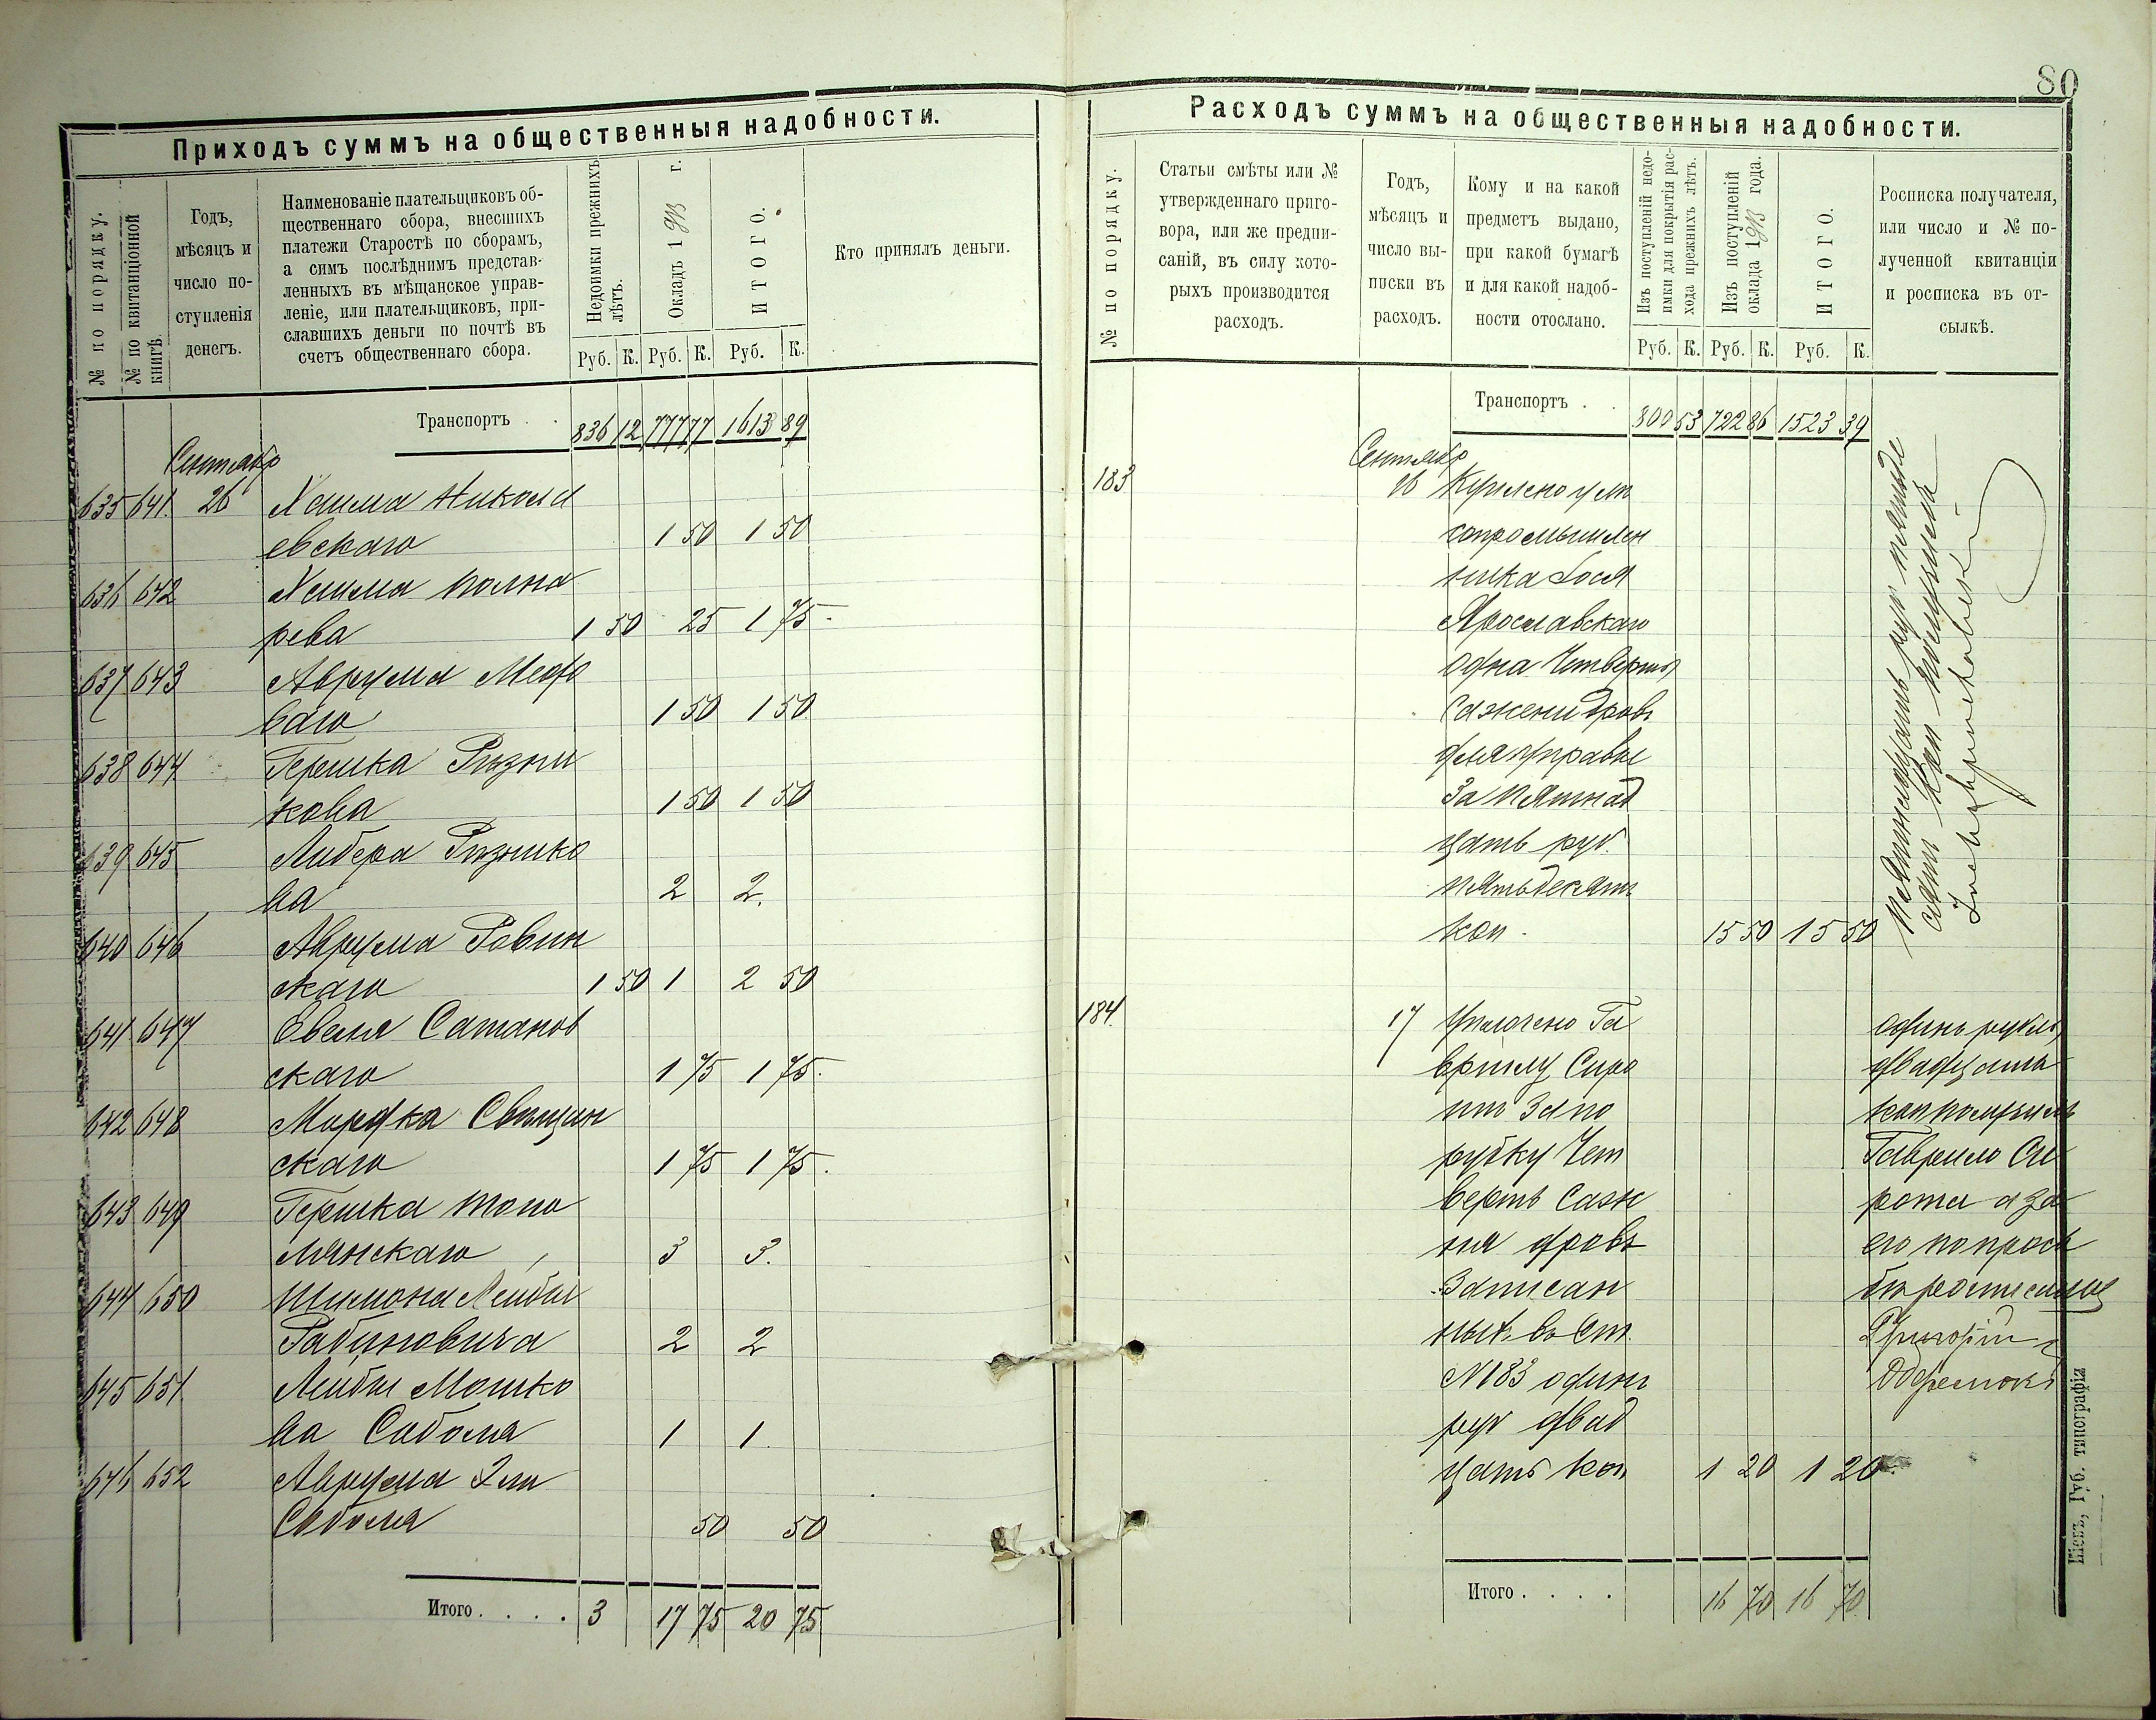 80
Приходъ суммъ на общественныя надобности.
№ по порядку.
№ по квитанціонной книгѣ.
Годъ, мѣсяцъ и число поступленія денегъ.
Наименованіе плательщиковъ об-
щественнаго сбора, внесшихъ
платежи Старостѣ по сборамъ,
а симъ послѣднимъ представ-
ленныхъ въ мѣщанское управ-
леніе, или плательщиковъ, при-
славшихъ деньги по почтѣ въ
счетъ общественнаго сбора.
Недоимки прежнихъ лѣтъ.
Окладъ 1913 г.
ИТОГО.
Кто принялъ деньги.
Руб. К. Руб. К. Руб. К.
Транспортъ . . 836 12 777 77 1613 89
Сентябр
635 641. 26 Хаима Никола
евскаго 1 50 1 50
636 642 Хаима Полна
рева 1 50 25 1 75
637 643 Аврума Медо
ваго 1 50 1 50
638 644 Гершка Рѣзни
кова 1 50 1 50
639 645 Либера Рѣзнико
ва 2 2.
640 646 Аврума Ровин
скаго 1 50 1 2 50
641 647 Евеля Сатанов
скаго 1 75 1 75.
642 648 Мордка Свѣщин
скаго 1 75 1 75.
643 649 Гершка Топо
лянскаго 3 3.
644 650 Шимона Лейбы
Рабиновича 2 2
645 651 Лейбы Мошко
ва Соболя 1 1.
646 652 Аврума Эли
Соболя 50 50
Итого . . . . 3 17 75 20 75
Расходъ суммъ на общественныя надобности.
№ по порядку.
Статьи смѣты или №
утвержденнаго приго-
вора, или же предпи-
саній, въ силу кото-
рыхъ производится
расходъ.
Годъ,
мѣсяцъ и
число вы-
писки въ
расходъ.
Кому и на какой
предметъ выдано,
при какой бумагѣ
и для какой надоб-
ности отослано.
Изъ поступленій недо-
имки для покрытія рас-
хода прежнихъ лѣтъ.
Изъ поступленій
оклада 1913 года.
ИТОГО.
Росписка получателя,
или число и № по-
лученной квитанціи
и росписка въ от-
сылкѣ.
Руб. К. Руб. К. Руб. К.
Транспортъ . . 800 53 722 86 1523 39
Сентябр
183 16 Куплено у лѣ
сопромышлен
ника Іося
Ярославскаго
одна четверть
сажени дровъ
для управы
за пятнад
цать руб.
пятьдесятъ
коп. 15 50 15 50
пятнадцать руб пятьде
сятъ коп получилъ
184. 17 Уплочено Га
врилу Сиро
тѣ за по
рубку чет
верть саж
ня дровъ
записан
ныхъ въ ст.
№ 183 одинъ
руб двад
цать коп 1 20 1 20
одинъ рубль
двадцать
коп получилъ
Гаврило Си
рота а за
его по прось
бѣ росписался
Григорій
Итого . . . . 16 70 16 70
Кіевъ, Губ. типографія